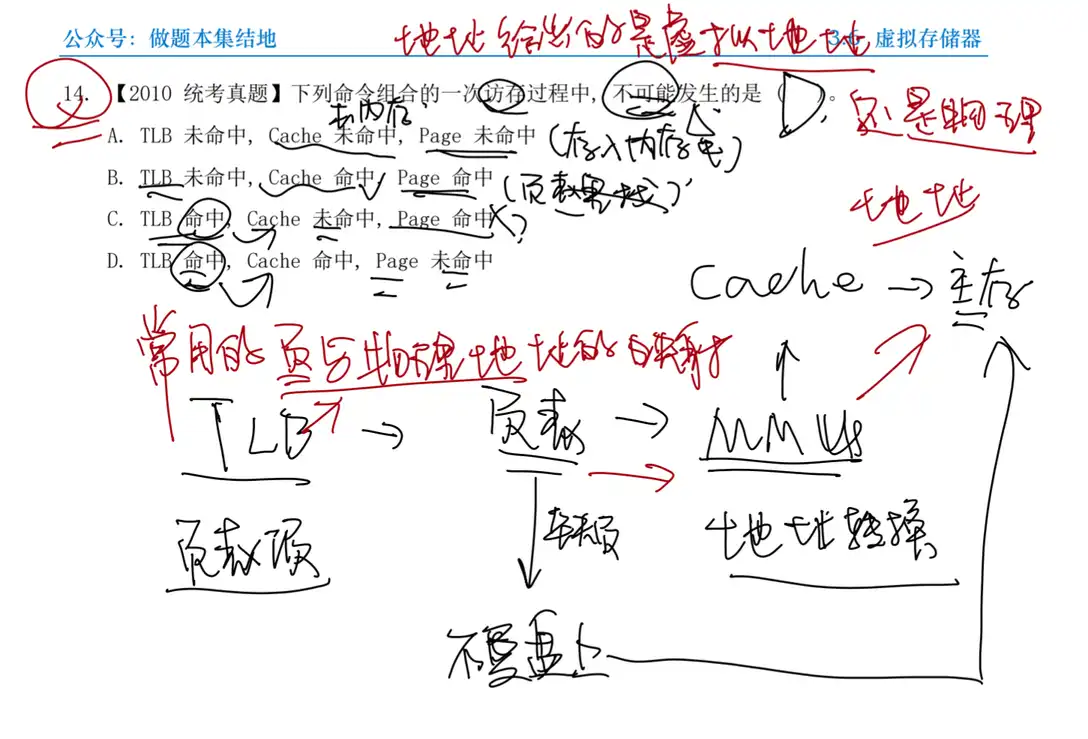 公众号：做题本集结地 3.6 虚拟存储器
地址给出的是虚拟地址
14. 【2010 统考真题】下列命令组合的一次访存过程中，不可能发生的是（ D ）。
还是物理
地址
去内存
A. TLB 未命中，Cache 未命中，Page 未命中 （存入内存
B. TLB 未命中，Cache 命中，Page 命中 （页表
C. TLB 命中，Cache 未命中，Page 命中
D. TLB 命中，Cache 命中，Page 未命中
Cache → 主存
常用的页与物理地址的映射
TLB → 页表 → MMU
页表项
缺页
地址转换